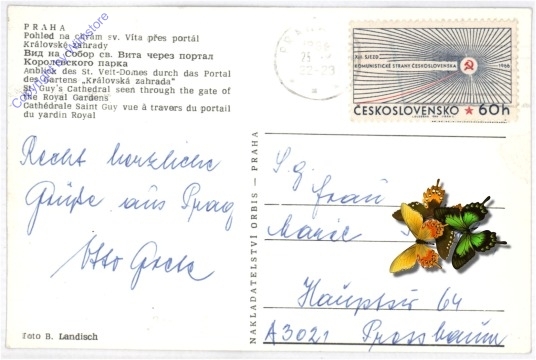 PRAHA
Pohled na chrám sv. Víta přes portál
Královské zahrady
Вид на Собор св. Вита через портал
Королевского парка
Anblick des St. Veit-Domes durch das Portal
des Gartens „Králověká zahrada"
St. Guy's Cathedral seen through the gate
of the Royal Gardens
Cathédrale Saint Guy vue à travers du portail
du yardin Royal
XVII. SJEZD
KOMUNISTICKÉ STRANY ČESKOSLOVENSKA
1986
ČESKOSLOVENSKO ★ 60h
Recht herzliche
Grüße aus Prag
Otto
NAKLADATELSTVÍ ORBIS — PRAHA
S.g.
Frau
Marie
Hauptstr 64
A3021 Pressbaum
Foto B. Landisch